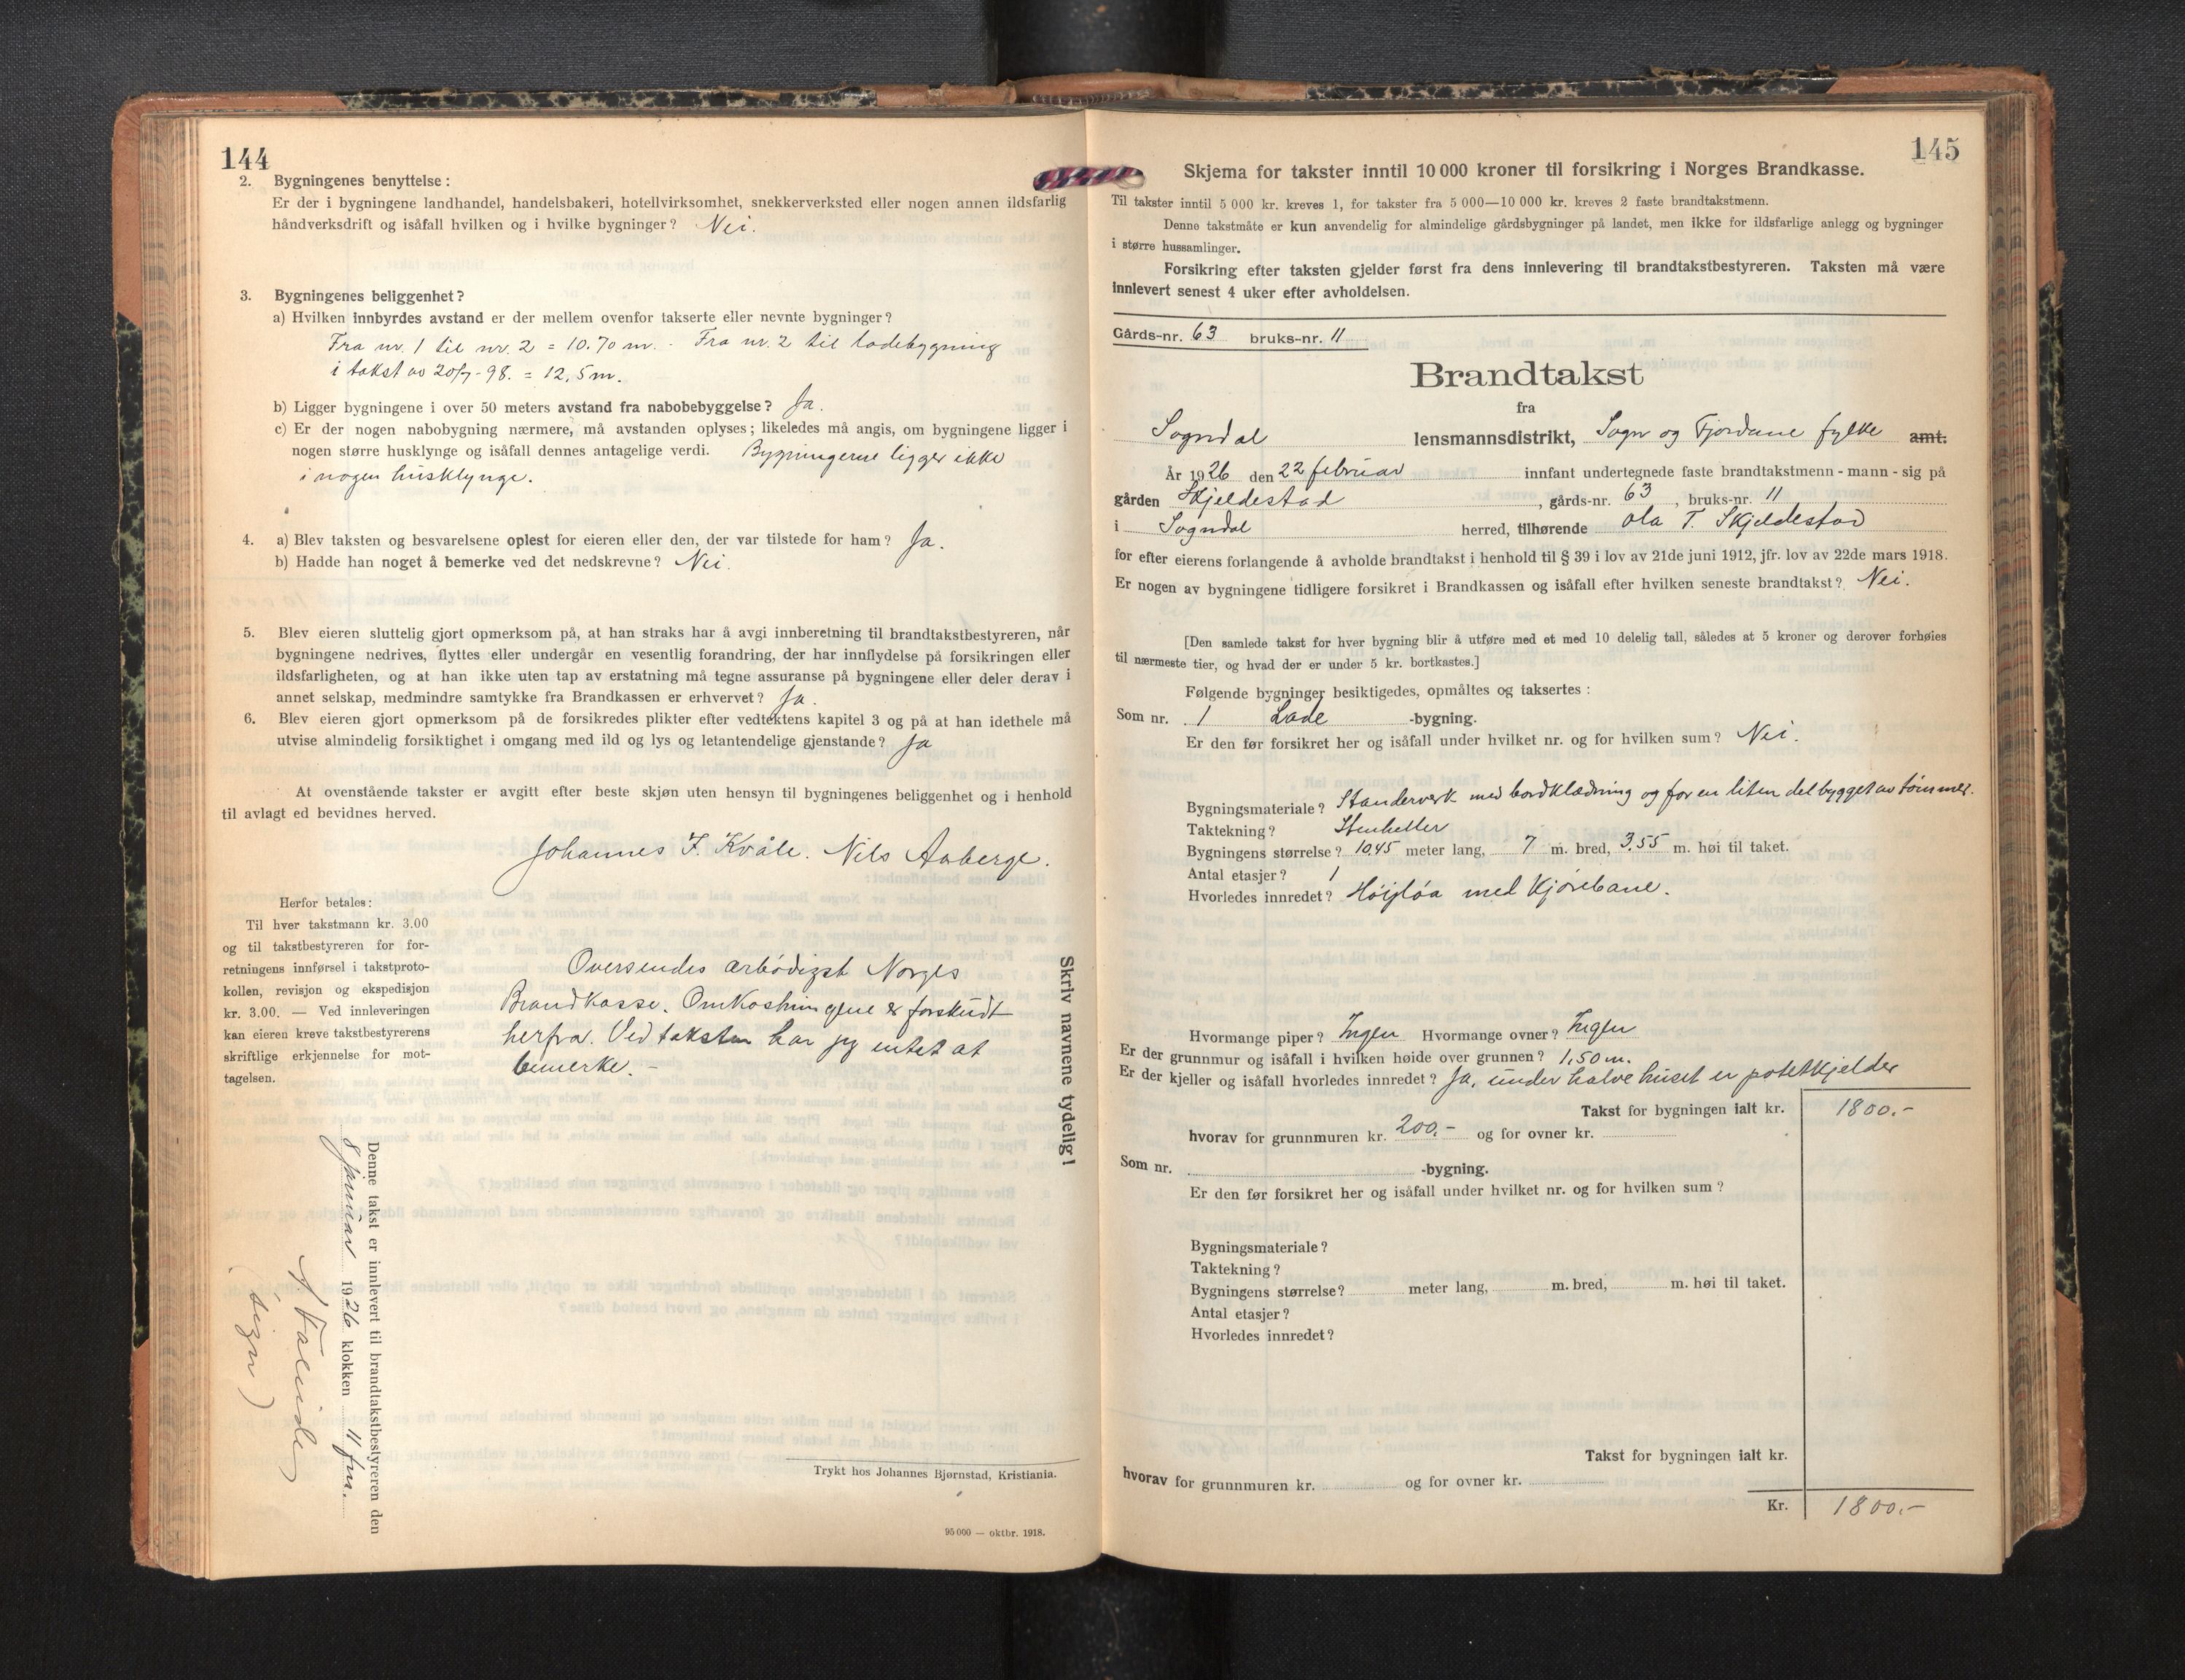 144
2. Bygningenes benyttelse:
Er der i bygningene landhandel, handelsbakeri, hotellvirksomhet, snekkerverksted eller nogen annen ildsfarlig
håndverksdrift og isåfall hvilken og i hvilke bygninger? Nei.
3. Bygningenes beliggenhet?
a) Hvilken innbyrdes avstand er der mellem ovenfor takserte eller nevnte bygninger?
Fra nr. 1 til nr. 2 = 10.70 m. Fra nr. 2 til ladebygning
i takst av 20/7-98. = 12,5 m.
b) Ligger bygningene i over 50 meters avstand fra nabobebyggelse? Ja.
c) Er der nogen nabobygning nærmere, må avstanden oplyses; likeledes må angis, om bygningene ligger i
nogen større husklynge og isåfall dennes antagelige verdi. Bygningerne ligger ikke
i nogen husklynge.
4. a) Blev taksten og besvarelsene oplest for eieren eller den, der var tilstede for ham? Ja.
b) Hadde han noget å bemerke ved det nedskrevne? Nei.
5. Blev eieren sluttelig gjort opmerksom på, at han straks har å avgi innberetning til brandtakstbestyreren, når
bygningene nedrives, flyttes eller undergår en vesentlig forandring, der har innflydelse på forsikringen eller
ildsfarligheten, og at han ikke uten tap av erstatning må tegne assuranse på bygningene eller deler derav i
annet selskap, medmindre samtykke fra Brandkassen er erhvervet? Ja.
6. Blev eieren gjort opmerksom på de forsikredes plikter efter vedtektens kapitel 3 og på at han idethele må
utvise almindelig forsiktighet i omgang med ild og lys og letantendelige gjenstande? Ja
At ovenstående takster er avgitt efter beste skjøn uten hensyn til bygningenes beliggenhet og i henhold
til avlagt ed bevidnes herved.
Johannes J. Kvåle. Nils Aaberge.
Herfor betales:
Til hver takstmann kr. 3.00
og til takstbestyreren for for-
retningens innførsel i takstproto-
kollen, revisjon og ekspedisjon
kr. 3.00. — Ved innleveringen
kan eieren kreve takstbestyrerens
skriftlige erkjennelse for mot-
tagelsen.
Oversendes ærbødigst Norges
Brandkasse. Omkostningene er forskudt
herfra. Ved taksten har jeg intet at
bemerke. -
Skriv navnene tydelig!
Denne takst er innlevert til brandtakstbestyreren den
8 januar 1926 klokken 11 fm.
(sign)
Trykt hos Johannes Bjørnstad, Kristiania.
95 000 — oktbr. 1918.
145
Skjema for takster inntil 10 000 kroner til forsikring i Norges Brandkasse.
Til takster inntil 5 000 kr. kreves 1, for takster fra 5 000—10 000 kr. kreves 2 faste brandtakstmenn.
Denne takstmåte er kun anvendelig for almindelige gårdsbygninger på landet, men ikke for ildsfarlige anlegg og bygninger
i større hussamlinger.
Forsikring efter taksten gjelder først fra dens innlevering til brandtakstbestyreren. Taksten må være
innlevert senest 4 uker efter avholdelsen.
Gårds-nr. 63 bruks-nr. 11
Brandtakst
fra
Sogndal lensmannsdistrikt, Sogn og Fjordane fylke amt.
År 1926 den 22 februar innfant undertegnede faste brandtakstmenn - mann - sig på
gården Skjeldestad, gårds-nr. 63, bruks-nr. 11
i Sogndal herred, tilhørende Ola T. Skjeldestad
for efter eierens forlangende å avholde brandtakst i henhold til § 39 i lov av 21de juni 1912, jfr. lov av 22de mars 1918.
Er nogen av bygningene tidligere forsikret i Brandkassen og isåfall efter hvilken seneste brandtakst? Nei.
[Den samlede takst for hver bygning blir å utføre med et med 10 delelig tall, således at 5 kroner og derover forhøies
til nærmeste tier, og hvad der er under 5 kr. bortkastes.]
Følgende bygninger besiktigedes, opmåltes og taksertes:
Som nr. 1 Lade -bygning.
Er den før forsikret her og isåfall under hvilket nr. og for hvilken sum? Nei.
Bygningsmateriale? Standerverk med bordklædning og for en liten del bygget av tømmer.
Taktekning? Stenheller
Bygningens størrelse? 10.45 meter lang, 7 m. bred, 3.55 m. høi til taket.
Antal etasjer? 1
Hvorledes innredet? Høigloa med Kjørebane.
Hvormange piper? Ingen Hvormange ovner? Ingen
Er der grunnmur og isåfall i hvilken høide over grunnen? 1,50 m.
Er der kjeller og isåfall hvorledes innredet? Ja, under halve huset er potetkjelder
Takst for bygningen ialt kr. 1800.-
hvorav for grunnmuren kr. 200.- og for ovner kr.
Som nr. -bygning.
Er den før forsikret her og isåfall under hvilket nr. og for hvilken sum?
Bygningsmateriale?
Taktekning?
Bygningens størrelse? meter lang, m. bred, m. høi til taket.
Antal etasjer?
Hvorledes innredet?
Takst for bygningen ialt kr.
hvorav for grunnmuren kr. og for ovner kr.
Kr. 1800.-